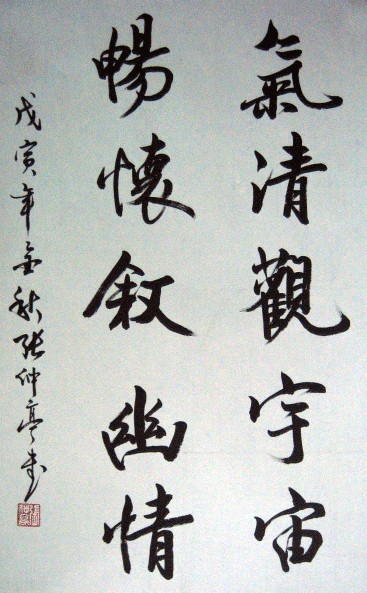 氣清觀宇宙
暢懷叙幽情
戊寅年金秋张仲亭书